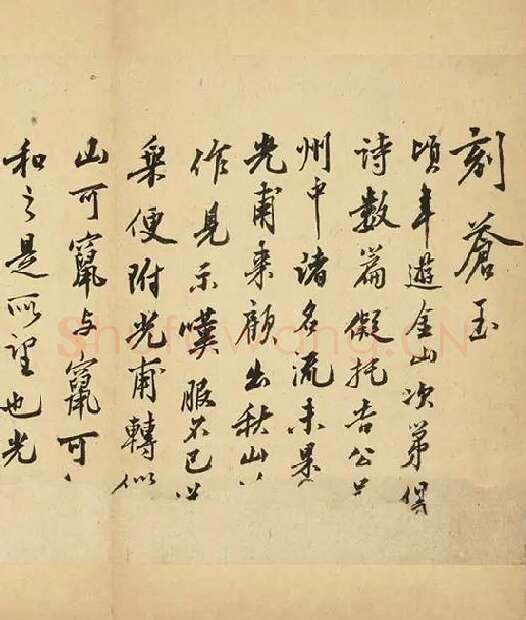 刻蒼玉
頃年遊金山次第
詩數篇儗托公
州中諸名流未果
光甫來顧出秋山
作見示嘆服不已
便附光甫轉似
山可竄与竄可
和之是所望也光
ShufaWang.CN